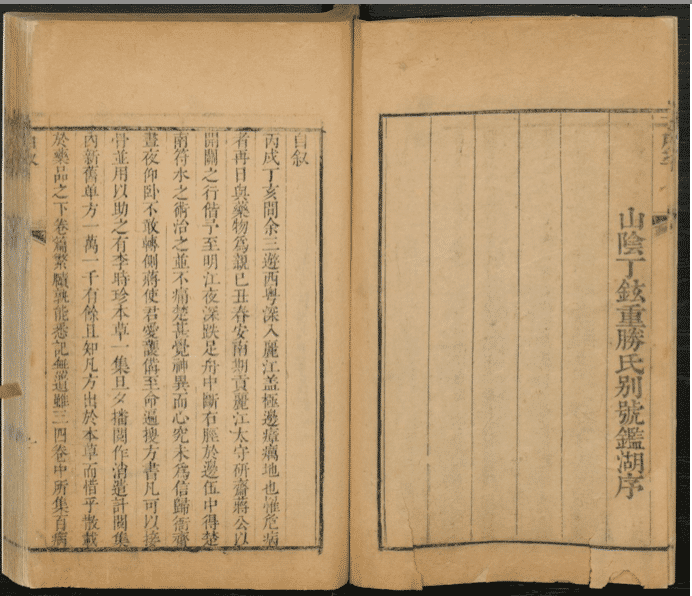 山陰丁鉉重勝氏别號鑑湖序
自叙
丙戌丁亥間余三遊西粤深入麗江盖極邊瘴癘地也罹危病
者再日與藥物爲親已丑春安南期貢麗江太守研齋蔣公以
開關之行偕予至明江夜深跌足舟中斷右脛於邊伍中得楚
南符水之術治之並不痛楚甚覺神異而心究未爲信歸衙齋
晝夜仰卧不敢轉側蔣使君愛護備至命遍搜方書凡可以接
骨並用以助之有李時珍本草一集旦夕播閱作消遣計閱集
內新舊单方一萬一千有餘且知凡方出於本草而惜乎散載
於藥品之下卷篇繁賾孰能悉記無遺雖三四卷中所集百病
自叙